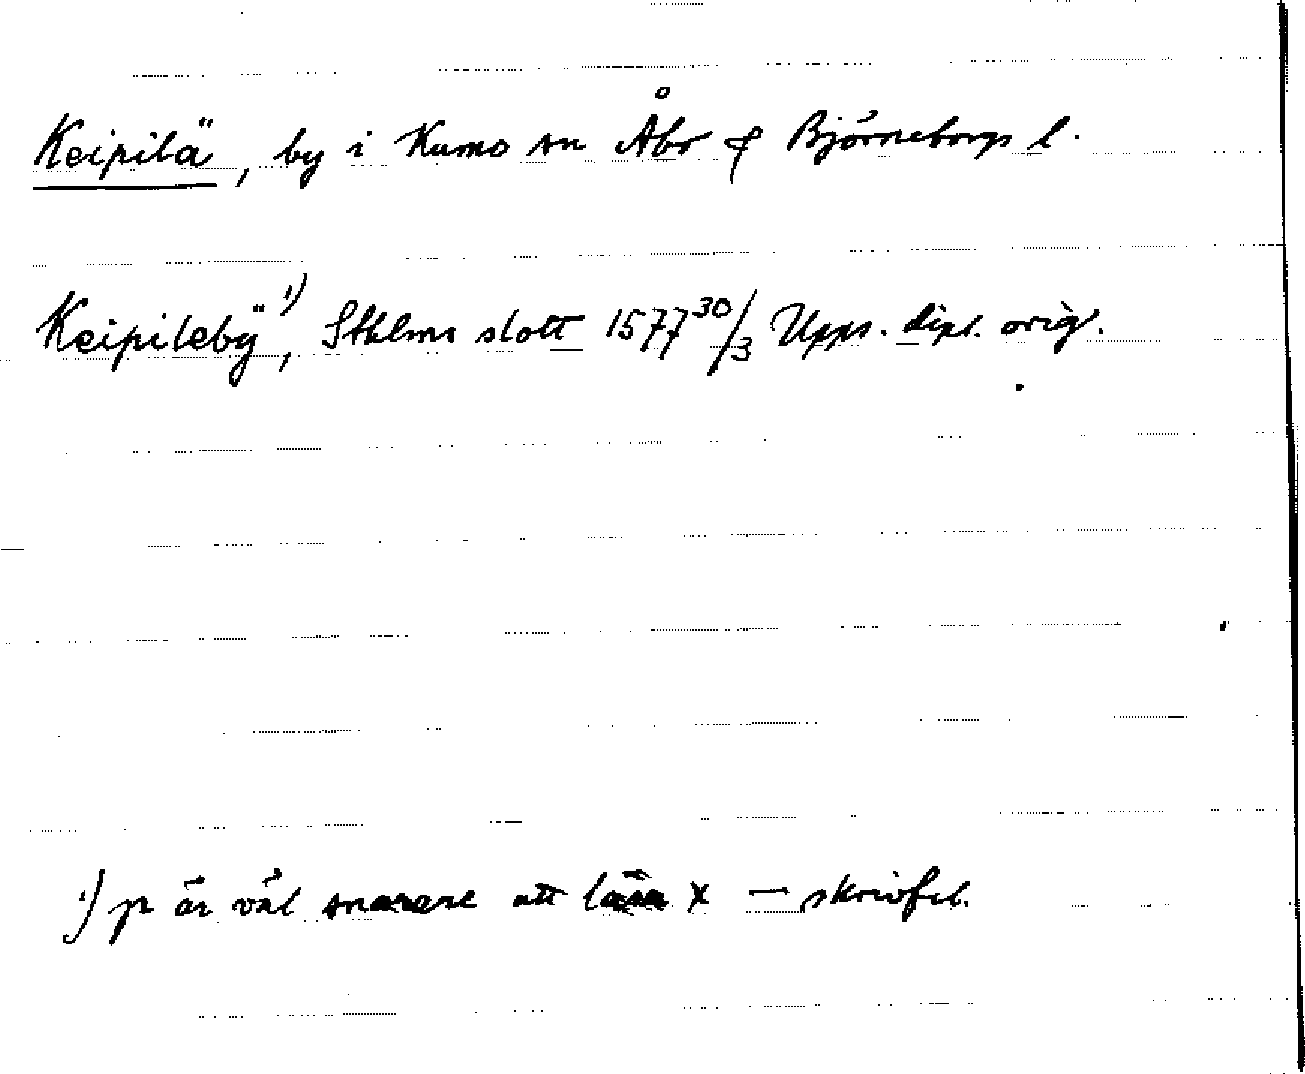 Keipilä, by i Kumo sn Åbo & Björneborgs l.
Keipilebÿ ¹), Sthlms slott 1577 30/3 Upps. dipl. orig.
¹) p är väl snarare att läsa x — skrivfel.